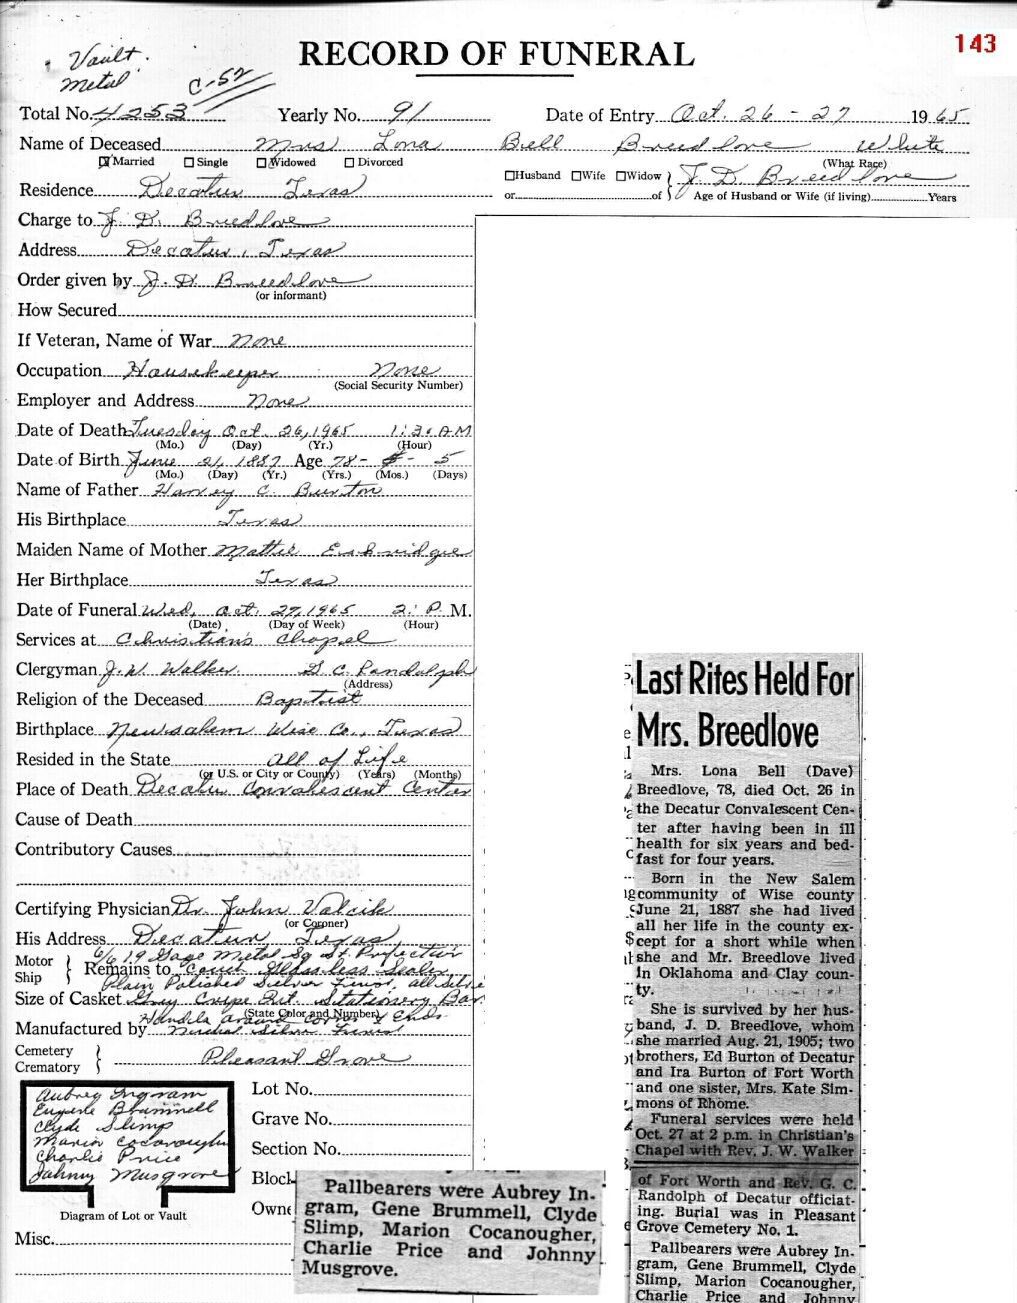 143
RECORD OF FUNERAL
Vault
Metal
C-52
Total No. 4253 Yearly No. 91 Date of Entry Oct. 26 - 27 1965
Name of Deceased Mrs Lona Bell Breedlove White
Married Single Widowed Divorced (What Race)
Husband Wife Widow J. D. Breedlove
Residence Decatur Texas or of Age of Husband or Wife (if living) Years
Charge to J. D. Breedlove
Address Decatur, Texas
Order given by J. D. Breedlove
(or informant)
How Secured
If Veteran, Name of War None
Occupation Housekeeper None
(Social Security Number)
Employer and Address None
Date of Death Tuesday Oct. 26, 1965 1:30 AM
(Mo.) (Day) (Yr.) (Hour)
Date of Birth June 21, 1887 Age 78 - - 5
(Mo.) (Day) (Yr.) (Yrs.) (Mos.) (Days)
Name of Father Harvey C. Burton
His Birthplace Texas
Maiden Name of Mother Mattie
Her Birthplace Texas
Date of Funeral Wed, Oct. 27, 1965 2: P. M.
(Date) (Day of Week) (Hour)
Services at Christian's Chapel
Clergyman J. W. Walker G. C. Randolph
(Address)
Religion of the Deceased Baptist
Birthplace Newsalem Wise Co., Texas
Resided in the State all of Life
(or U.S. or City or County) (Years) (Months)
Place of Death Decatur Convalescent Center
Cause of Death
Contributory Causes
Certifying Physician Dr. John Valcik
(or Coroner)
His Address Decatur Texas
6/6 19 Gage Metal Sq
Motor
Ship
Remains to Sealer
Plain Polished Silver
Size of Casket Gray Crepe Int. Stationery Bar
(State Color and Number)
Handels around & Ends
Manufactured by Silver
Cemetery
Crematory
Pleasant Grove
Aubrey Ingram
Eugene Brummell
Clyde Slimp
Marion Cocanougher
Charlie Price
Johnny Musgrove
Diagram of Lot or Vault
Lot No.
Grave No.
Section No.
Block
Owne
Misc.
Pallbearers were Aubrey In-
gram, Gene Brummell, Clyde
Slimp, Marion Cocanougher,
Charlie Price and Johnny
Musgrove.
Last Rites Held For
Mrs. Breedlove
Mrs. Lona Bell (Dave)
Breedlove, 78, died Oct. 26 in
the Decatur Convalescent Cen-
ter after having been in ill
health for six years and bed-
fast for four years.
Born in the New Salem
community of Wise county
June 21, 1887 she had lived
all her life in the county ex-
cept for a short while when
she and Mr. Breedlove lived
in Oklahoma and Clay coun-
ty.
She is survived by her hus-
band, J. D. Breedlove, whom
she married Aug. 21, 1905; two
brothers, Ed Burton of Decatur
and Ira Burton of Fort Worth
and one sister, Mrs. Kate Sim-
mons of Rhome.
Funeral services were held
Oct. 27 at 2 p.m. in Christian's
Chapel with Rev. J. W. Walker
of Fort Worth and Rev. G. C.
Randolph of Decatur officiat-
ing. Burial was in Pleasant
Grove Cemetery No. 1.
Pallbearers were Aubrey In-
gram, Gene Brummell, Clyde
Slimp, Marion Cocanougher,
Charlie Price and Johnny